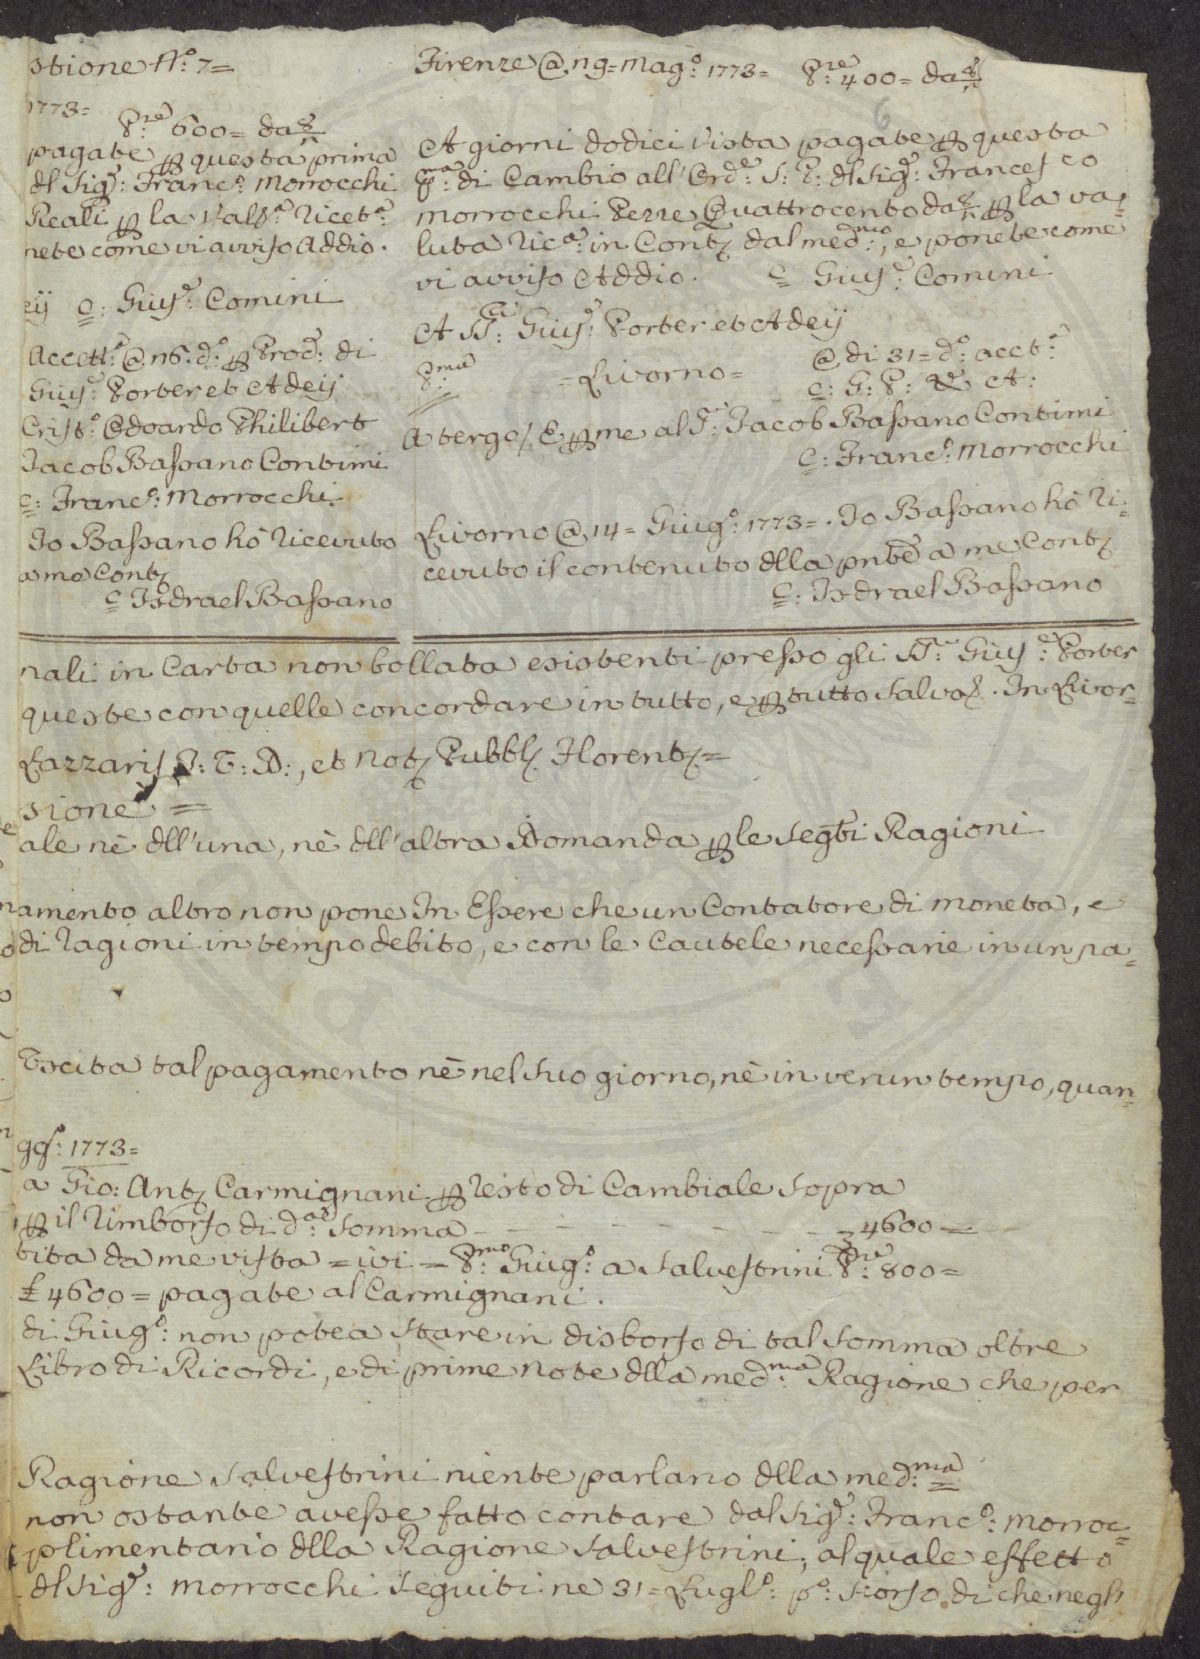 stione No: 7=
1773=
Pre: 600= da 8/n
pagate p questa prima
dl Sigr: Franco: Morrocchi
Reali p la Valta: ricta:
nete come vi avviso Addio.
eij C: Giuse: Comini
Accetta: @ 16. do: p Procra: di
Giuse: Porter et Adeij
Cristo: Edoardo Philibert
Jacob Bassano Contimi
C: Franco: Morrocchi
Io Bassano hò ricevuto
a me Conti
C Isdrael Bassano
Firenze @ 19= Mago: 1773= Pre: 400= da 8/n
6
A giorni dodici vista pagate p questa
pma: di Cambio all'Orde: S: P: dl Sigr: Francesco
Morrocchi Pezze Quattrocento da 8/n p la va=
luta rica: in Conti dal medmo:, e ponete come
vi avviso Addio. C Giuse: Comini
A SSri: Giuse: Porter et Adeij
Pma: =Livorno= @ di 31= do: accta:
C: G: P: & A:
A tergo/ E p me al Sr: Jacob Bassano Contimi
C: Franco: Morrocchi
Livorno @ 14= Giugo: 1773=. Io Bassano hò ri=
cevuto il contenuto dlla pnte a me Conti
C: Isdrael Bassano
nali in Carta non bollata esistenti presso gli SSri: Giuse: Porter
queste con quelle concordare in tutto, e p tutto salvo. In Livor=
Lazzaris J: V: D:, et Not Pubbl Florent=
sione =
ale nè dll'una, nè dll'altra Domanda p le segti Ragioni
namento altro non pone In Essere che un Contatore di moneta, e
di ragioni in tempo debito, e con le Cautele necessarie in un pa=
Escita tal pagamento nè nel suo giorno, nè in verun tempo, quan=
ggo: 1773=
a Gio: Anto Carmignani p resto di Cambiale sopra
p il rimborso di da: somma - - - - - - - 4600 -
tita da me vista = ivi = Pmo: Giugo: a Salvestrini Pre: 800=
£ 4600= pagate al Carmignani.
di Giugo: non potea stare in disborso di tal somma oltre
Libro di Ricordi, e di prime note dlla medma: Ragione che per
Ragione Salvestrini niente parlano dlla medma: =
non ostante avesse fatto contare dal Sigr: Franco: Morroc=
plimentario dlla Ragione Salvestrini, al quale effetto
dl Sigr: Morrocchi seguiti ne 31= Luglo: po: scorso di che negli